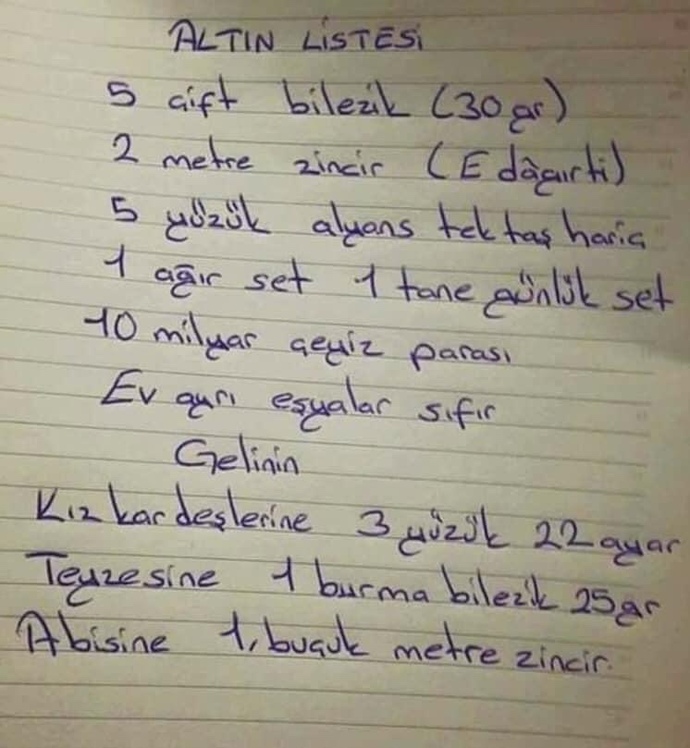 ALTIN LİSTESİ
5 çift bilezik (30 gr)
2 metre zincir (E dâğırti)
5 yüzük alyans tek taş hariç
1 ağır set 1 tane günlük set
10 milyar çeyiz parası
Ev ayrı eşyalar sıfır
Gelinin
Kız kardeşlerine 3 yüzük 22 ayar
Teyzesine 1 burma bilezik 25 gr
Abisine 1, buçuk metre zincir.